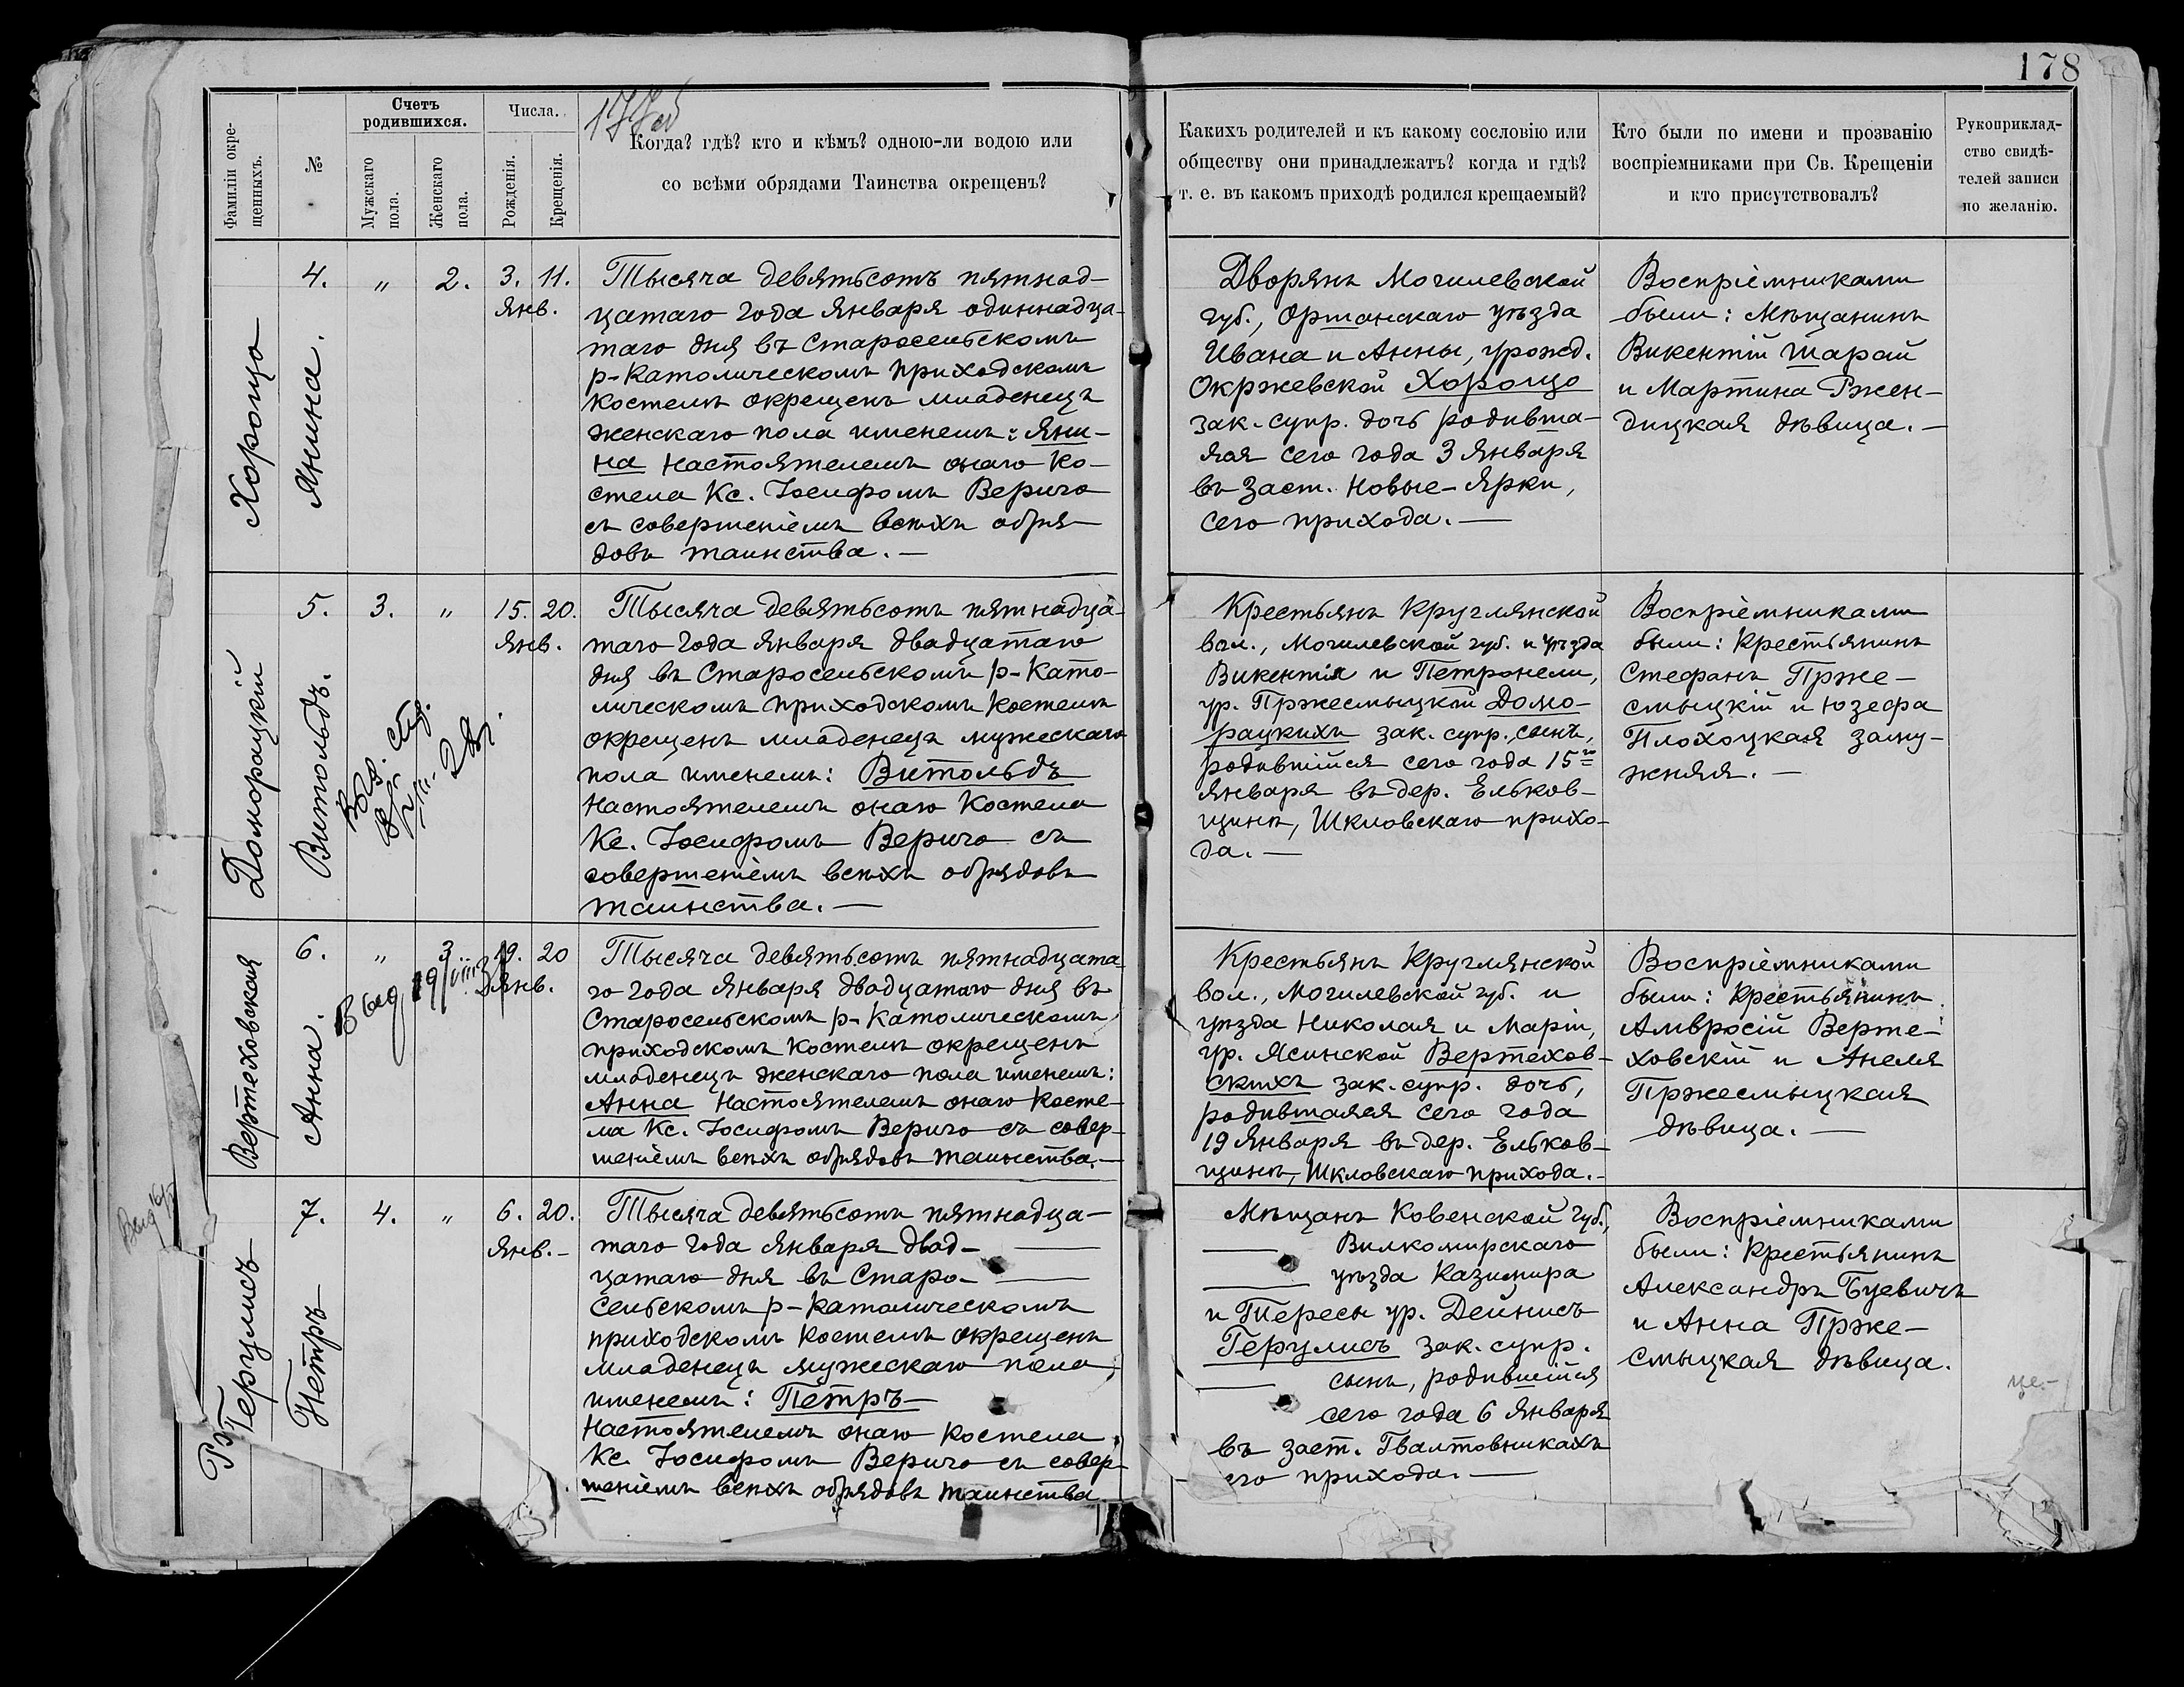 178
177об
Фамиліи окре-
щенныхъ.
№
Счетъ
родившихся.
Мужскаго
пола.
Женскаго
пола.
Числа.
Рожденія.
Крещенія.
Когда? гдѣ? кто и кѣмъ? одною-ли водою или
со всѣми обрядами Таинства окрещенъ?
Какихъ родителей и къ какому сословію или
обществу они принадлежатъ? когда и гдѣ?
т. е. въ какомъ приходѣ родился крещаемый?
Кто были по имени и прозванію
воспріемниками при Св. Крещеніи
и кто присутствовалъ?
Рукоприклад-
ство свидѣ-
телей записи
по желанію.
Хорощо
4.
Янина.
"
2.
3. 11.
Янв.
Тысяча девятьсотъ пятнад-
цатаго года Января одиннадца-
таго дня въ Старосельскомъ
р-Католическомъ приходскомъ
Костелѣ окрещенъ младенецъ
женскаго пола именемъ: Яни-
на Настоятелемъ онаго Ко-
стела Кс. Іосифомъ Верыго
съ совершеніемъ всѣхъ обря-
довъ таинства. —
Дворянъ Могилевской
губ., Оршанскаго уѣзда
Ивана и Анны, урожд.
Окржевской Хорощо
зак. супр. дочь родивша-
яся сего года 3 Января
въ Заст. Новые-Ярки,
сего прихода. —
Воспріемниками
были: Мѣщанинъ
Викентій Шарай
и Мартина Ржен-
дицкая дѣвица. —
Доморацкій
5.
Витольдъ.
3.
"
15. 20.
Янв.
Тысяча девятьсотъ пятнадца-
таго года Января двадцатаго
дня въ Старосельскомъ р-Като-
лическомъ приходскомъ Костелѣ
окрещенъ младенецъ мужескаго
пола именемъ: Витольдъ
Настоятелемъ онаго Костела
Кс. Іосифомъ Верыго съ
совершеніемъ всѣхъ обрядовъ
таинства. —
Крестьянъ Круглянской
вол., Могилевской губ. и уѣзда
Викентія и Петронели,
ур. Пржесмыцкой Домо-
рацкихъ зак. супр., сынъ,
родившійся сего года 15го
Января въ дер. Ельков-
щинѣ, Шкловскаго прихо-
да. —
Воспріемниками
были: Крестьянинъ
Стефанъ Прже-
смыцкій и Юзефа
Плохоцкая заму-
жняя. —
Вертеховская
6.
Анна.
"
3
19. 20
Янв.
Выд 19
Тысяча девятьсотъ пятнадцата-
го года Января двадцатаго дня въ
Старосельскомъ р-Католическомъ
приходскомъ Костелѣ окрещенъ
младенецъ женскаго пола именемъ:
Анна Настоятелемъ онаго Косте-
ла Кс. Іосифомъ Верыго съ совер-
шеніемъ всѣхъ обрядовъ таинства. —
Крестьянъ Круглянской
вол., Могилевской губ. и
уѣзда Николая и Маріи,
ур. Ясинской Вертехов-
скихъ зак. супр. дочь,
родившаяся сего года
19 Января въ дер. Ельков-
щинѣ, Шкловскаго прихода. -
Воспріемниками
были: Крестьянинъ
Амвросій Верте-
ховскій и Анеля
Пржесмыцкая
дѣвица. —
Герулисъ
7.
Петръ
4.
"
6. 20.
Янв. -
Тысяча девятьсотъ пятнадца-
таго года Января двад- —
цатаго дня въ Старо- —
сельскомъ р-Католическомъ
приходскомъ Костелѣ окрещенъ
младенецъ мужескаго пола,
именемъ: Петръ —
Настоятелемъ онаго Костела
Кс. Іосифомъ Верыго съ совер-
шеніемъ всѣхъ обрядовъ таинства
Мѣщанъ Ковенской губ.,
— Вилкомирскаго
— уѣзда Казимира
и Тересы ур. Дейнисъ
Герулисъ зак. супр.
— сынъ, родившійся
сего года 6 Января
въ заст. Гвалтовникахъ
его прихода. —
Воспріемниками
были: Крестьянинъ
Александръ Буевичъ
и Анна Прже-
смыцкая дѣвица.